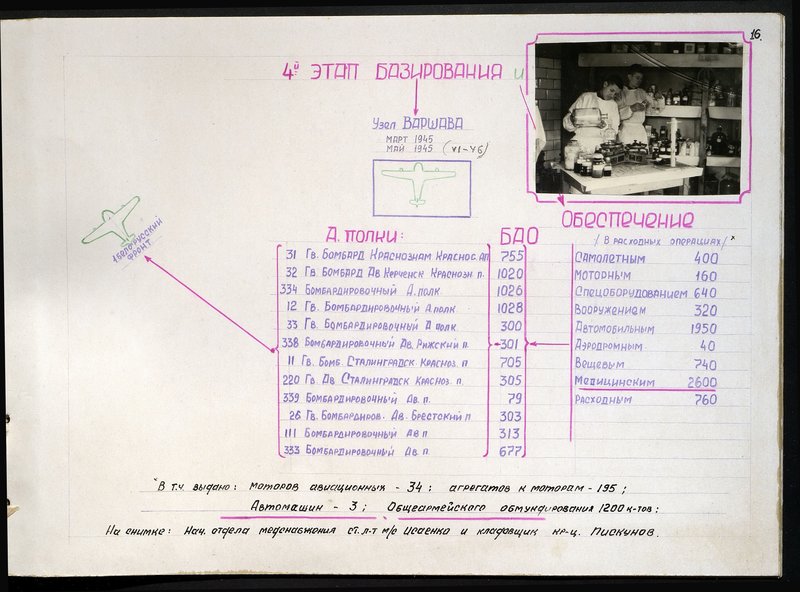 16.
4й ЭТАП БАЗИРОВАНИЯ и
Узел ВАРШАВА
МАРТ 1945
МАЙ 1945 (VI-46)
1 БЕЛОРУССКИЙ
ФРОНТ
ОБЕСПЕЧЕНИЕ
/ В РАСХОДНЫХ ОПЕРАЦИЯХ/ *
А. ПОЛКИ: БАО
31 Гв. БОМБАРД КРАСНОЗНАМ КРАСНОС. АП 755
32 Гв. БОМБАРД АВ. КЕРЧЕНСК КРАСНОЗН П. 1020
334 БОМБАРДИРОВОЧНЫЙ А. ПОЛК 1026
12 Гв. БОМБАРДИРОВОЧНЫЙ А. ПОЛК 1028
33 Гв. БОМБАРДИРОВОЧНЫЙ А ПОЛК 300
338 БОМБАРДИРОВОЧНЫЙ АВ. РИЖСКИЙ П. 301
11 Гв. БОМБ. СТАЛИНГРАДСК. КРАСНОЗ. П 705
220 Гв. АВ СТАЛИНГРАДСК КРАСНОЗ. П. 305
339 БОМБАРДИРОВОЧНЫЙ АВ. П. 79
26 Гв. БОМБАРДИРОВ. АВ. БРЕСТСКИЙ П 303
111 БОМБАРДИРОВОЧНЫЙ АВ П. 313
333 БОМБАРДИРОВОЧНЫЙ АВ. П. 677
САМОЛЕТНЫМ 400
МОТОРНЫМ 160
СПЕЦОБОРУДОВАНИЕМ 640
ВООРУЖЕНИЕМ 320
АВТОМОБИЛЬНЫМ 1950
АЭРОДРОМНЫМ 40
ВЕЩЕВЫМ 740
МЕДИЦИНСКИМ 2600
РАСХОДНЫМ 760
*В т.ч. выдано: моторов авиационных - 34; агрегатов к моторам - 195;
Автомашин - 3; Общеармейского обмундирования 1200 к-тов;
На снимке: Нач. отдела медснабжения ст. л-т м/с Исаенко и кладовщик кр-ц. Пискунов.